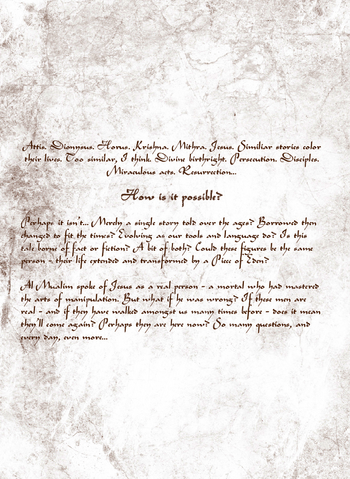 Attis. Dionysus. Horus. Krishna. Mithra. Jesus. Similiar stories color
their lives. Too similar, I think. Divine birthright. Persecution. Disciples.
Miraculous acts. Resurrection...
How is it possible?
Perhaps it isn't... Merely a single story told over the ages? Borrowed then
changed to fit the times? Evolving as our tools and language do? Is this
tale borne of fact or fiction? A bit of both? Could these figures be the same
person - their life extended and transformed by a Piece of Eden?
Al Mualim spoke of Jesus as a real person - a mortal who had mastered
the arts of manipulation. But what if he was wrong? If these men are
real - and if they have walked amongst us many times before - does it mean
they'll come again? Perhaps they are here now? So many questions, and
every day, even more...